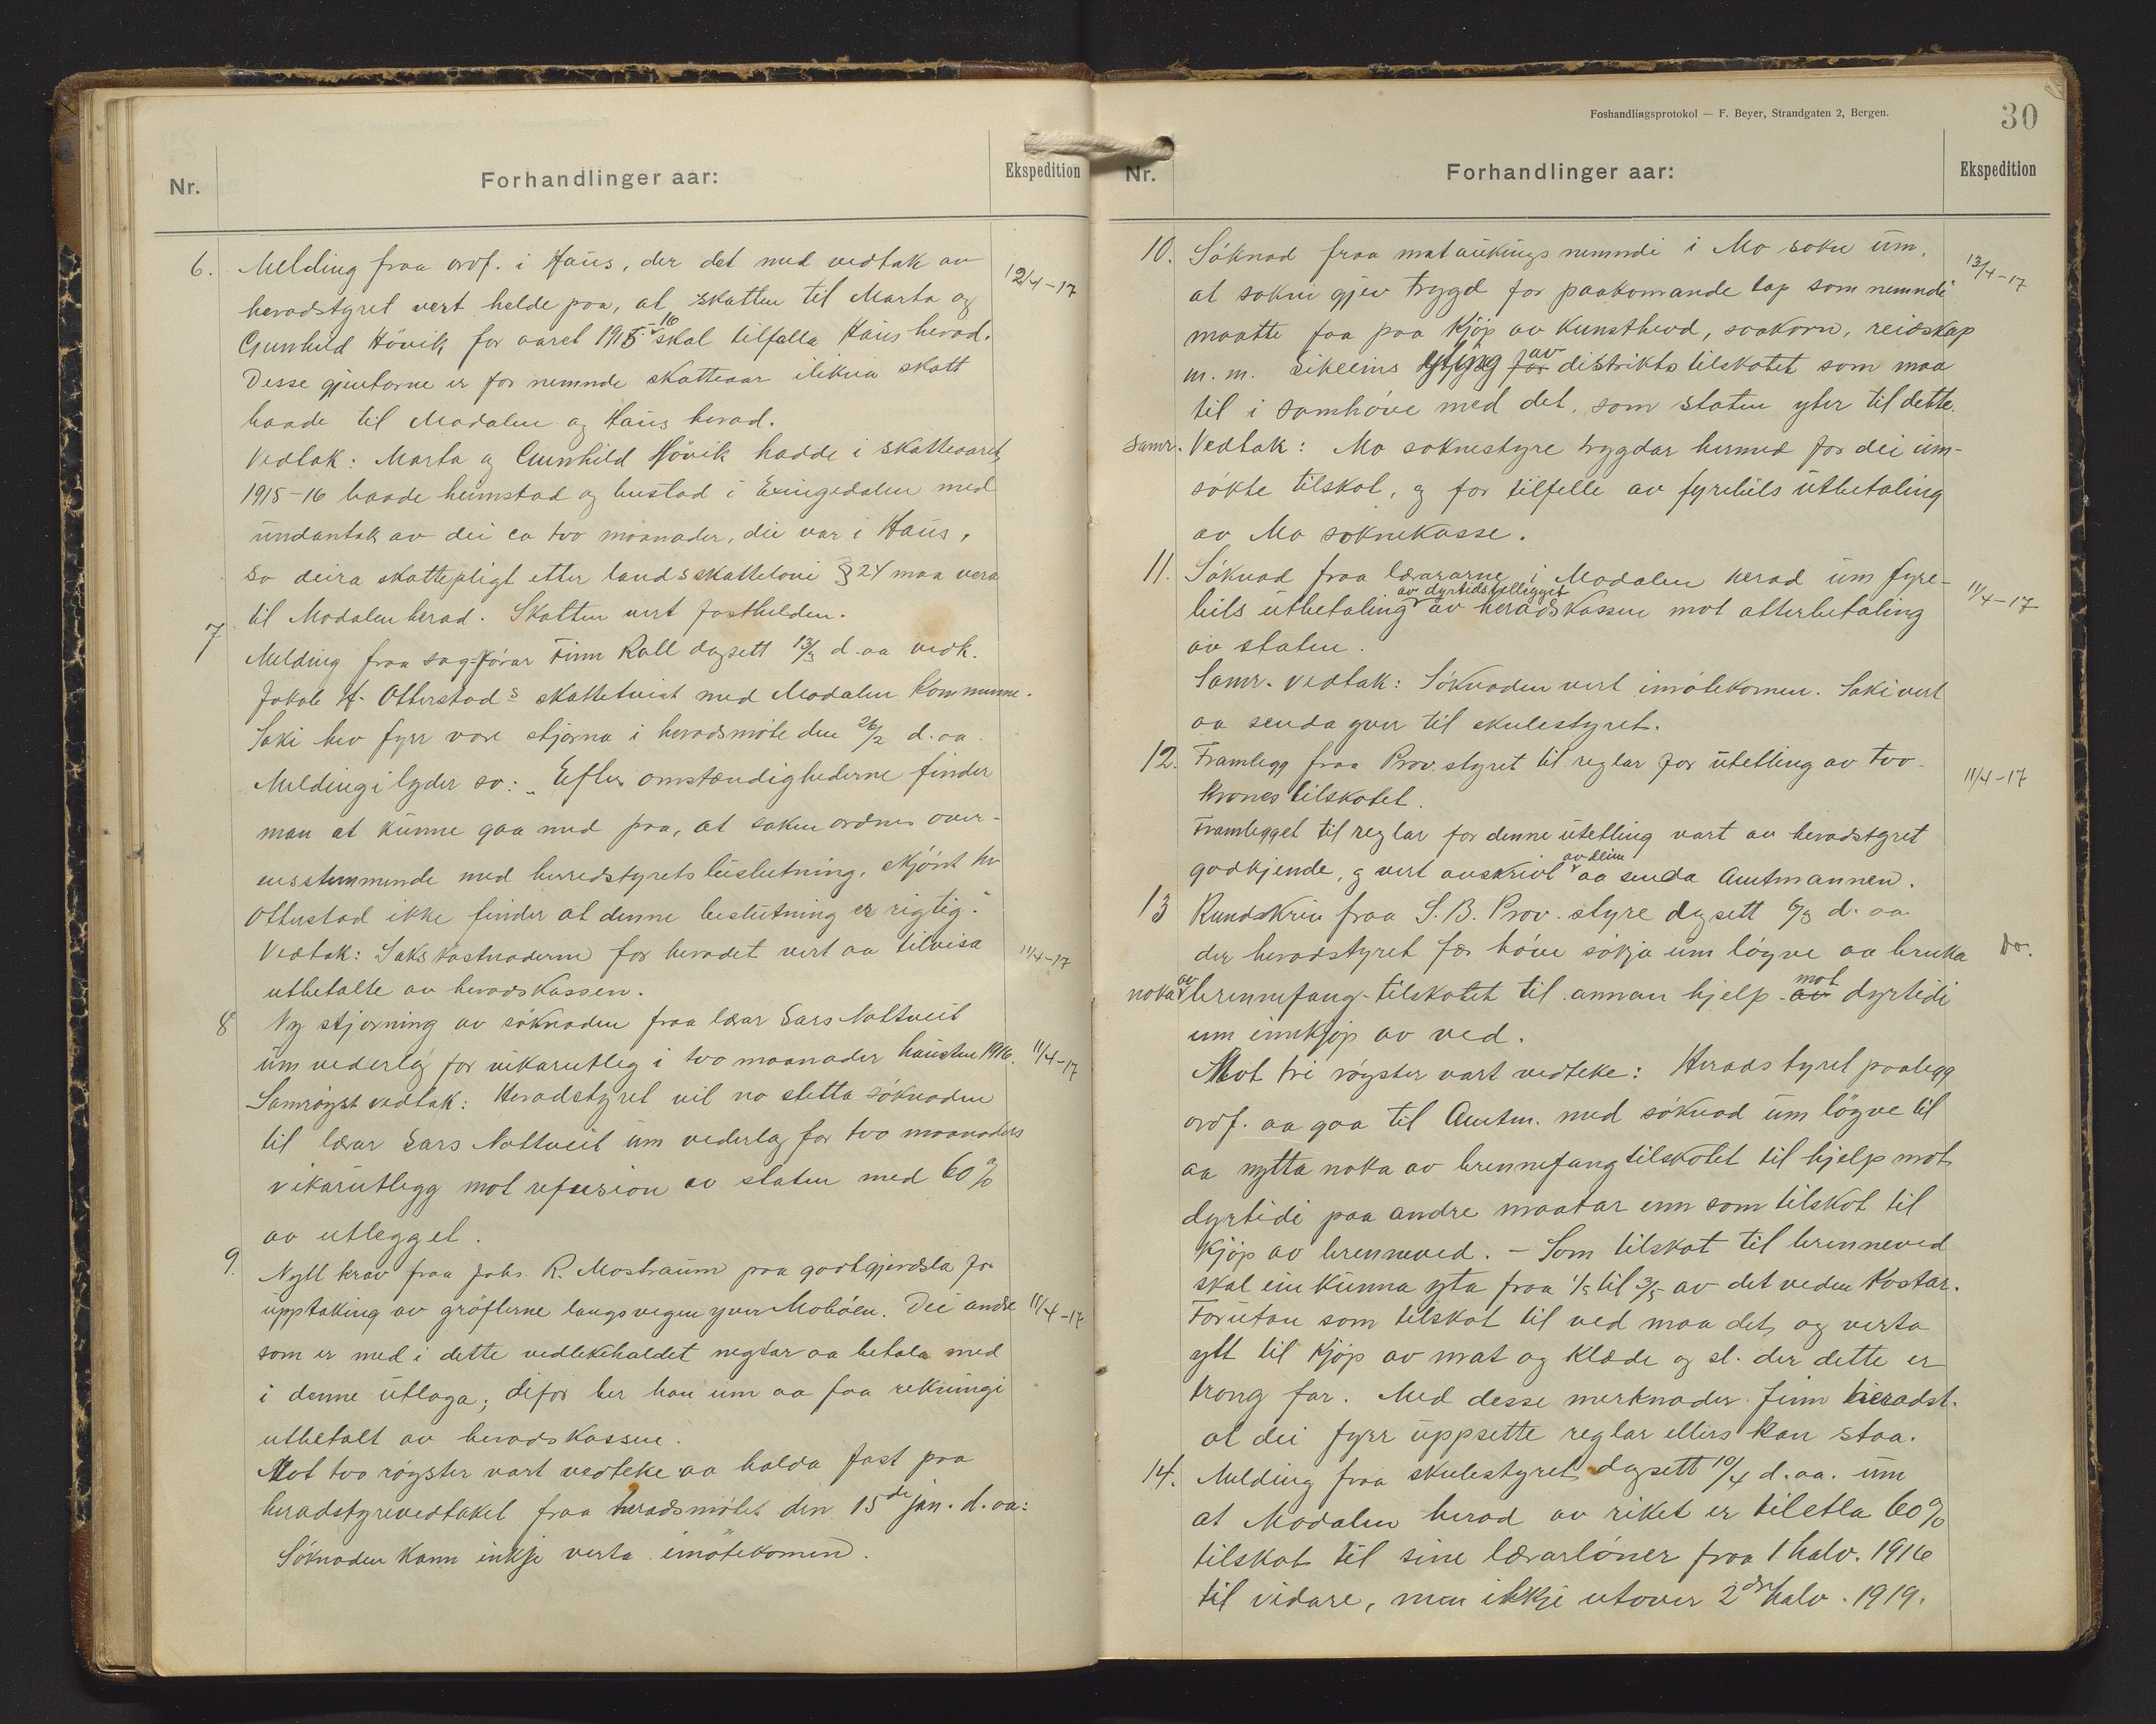 Nr.
Forhandlinger aar:
Ekspedition
6. Melding fraa ordf. i Haus, der det med vedtak av
12/4-17
heradstyret vert helde paa, at skatten til Marta og
Gunhild Hövik for aaret 1915-16 skal tilfalla Haus herad.
Desse gjentorne er for nemnde skatteaar ilikna skatt
baade til Modalen og Haus herad.
Vedtak: Marta og Gunhild Hövik hadde i skatteaaret
1915-16 baade heimstad og bustad i Eksingedalen med
undantak av dei ca tvo maanader, dei var i Haus,
so deira skattepligt etter landsskatteloni § 24 maa vera
til Modalen herad. Skatten vert fasthelden.
7. Melding fraa sag-förar Finn Rall dagsett 13/3 d.aa vedk.
Jakob A. Otterstads skattetvist med Modalen Kommune.
Saki hev fyrr vore stjorna i heradsmöte den 26/2 d.aa.
Meldingi lyder so: „Efter omstændighederne finder
man at kunne gaa med paa, at saken ordnes over-
ensstemmende med herredstyrets beslutning, skjönt hr
Otterstad ikke finder at denne beslutning er rigtig."
Vedtak: Sakskostnaderne for heradet vert aa tilvisa
11/4-17
utbetalte av heradskassen.
8 Ny stjorning av söknaden fraa lærar Lars Nottveit
um vederlag for vikarutleg i tvo maanader hausten 1916.
11/4-17
Samröyst vedtak: Heradstyret vil no stetta söknaden
til lærar Lars Nottveit um vederlag for tvo maanaders
vikarutlegg mot refusion av staten med 60%
av utlegget.
9. Nytt krav fraa Johs. R. Mostraum paa godtgjerdsla for
upptaking av gröfterne langs vegen yver Moböen. Dei andre
11/4-17
som er med i dette vedlikehaldet negtar aa betala med
i denne utlaga; difor ber han um aa faa rekningi
utbetalt av heradskassen.
Mot tvo röyster vart vedteke aa halda fast paa
heradstyrevedtaket fraa heradsmötet den 15de jan. d.aa:
Söknaden kann inkje verta imötekomen.
Foshandlingsprotokol — F. Beyer, Strandgaten 2, Bergen.
30
Nr.
Forhandlinger aar:
Ekspedition
10. Söknad fraa mataukingsnemndi i Mo sokn um,
13/4-17
at sokni gjev trygd for paakomande tap som nemndi
maatte faa paa kjöp av kunsthevd, saakorn, reidskap
m.m. likeeins for av distriktstilskotet som maa
til i samhöve med det, som staten yter til dette.
Samr. Vedtak: Mo soknestyre trygdar hermed for dei um-
sökte tilskot, og for tilfelle av fyrebils utbetaling
av Mo soknekasse.
11. Söknad fraa lærararne i Modalen herad um fyre-
11/4-17
av dyrtidstillegget
bils utbetaling av heradskassen mot atterbetaling
av staten.
Samr. vedtak: Söknaden vert imötekomen. Saki vert
aa senda yver til skulestyret.
12. Framlegg fraa Prov. styret til reglar for utetling av tvo-
11/4-17
krones tilskotet.
Framlegget til reglar for denne utetling vart av heradstyret
av deim
godkjende, og vert avskrivt aa senda Amtmannen.
13 Rundskriv fraa S. B. Prov. styre dagsett 6/3 d. aa
der heradstyret fær höve sökja um lögve aa bruka
Do.
noko av brennefang-tilskotet til annan hjelp av mot dyrtidi
um innkjöp av ved.
Mot tri röyster vart vedteke: Heradstyret paalegg
ordf. aa gaa til Amtm. med söknad um lögve til
aa nytta noka av brennefangtilskotet til hjelp mot
dyrtidi paa andre maatar enn som tilskot til
kjöp av brenneved. – Som tilskot til brenneved
skal ein kunna yta fraa 1/5 til 3/5 av det veden kostar.
Forutan som tilskot til ved maa det og verta
ytt til kjöp av mat og klæde og sl. der dette er
trong for. Med desse merknader finn heradst.
at dei fyrr uppsette reglar ellers kan staa.
14. Melding fraa skulestyret dagsett 10/4 d.aa. um
at Modalen herad av riket er tiletla 60%
tilskot til sine lærarlöner fraa 1 halv. 1916
til vidare, men ikkje utover 2dre halv. 1919.